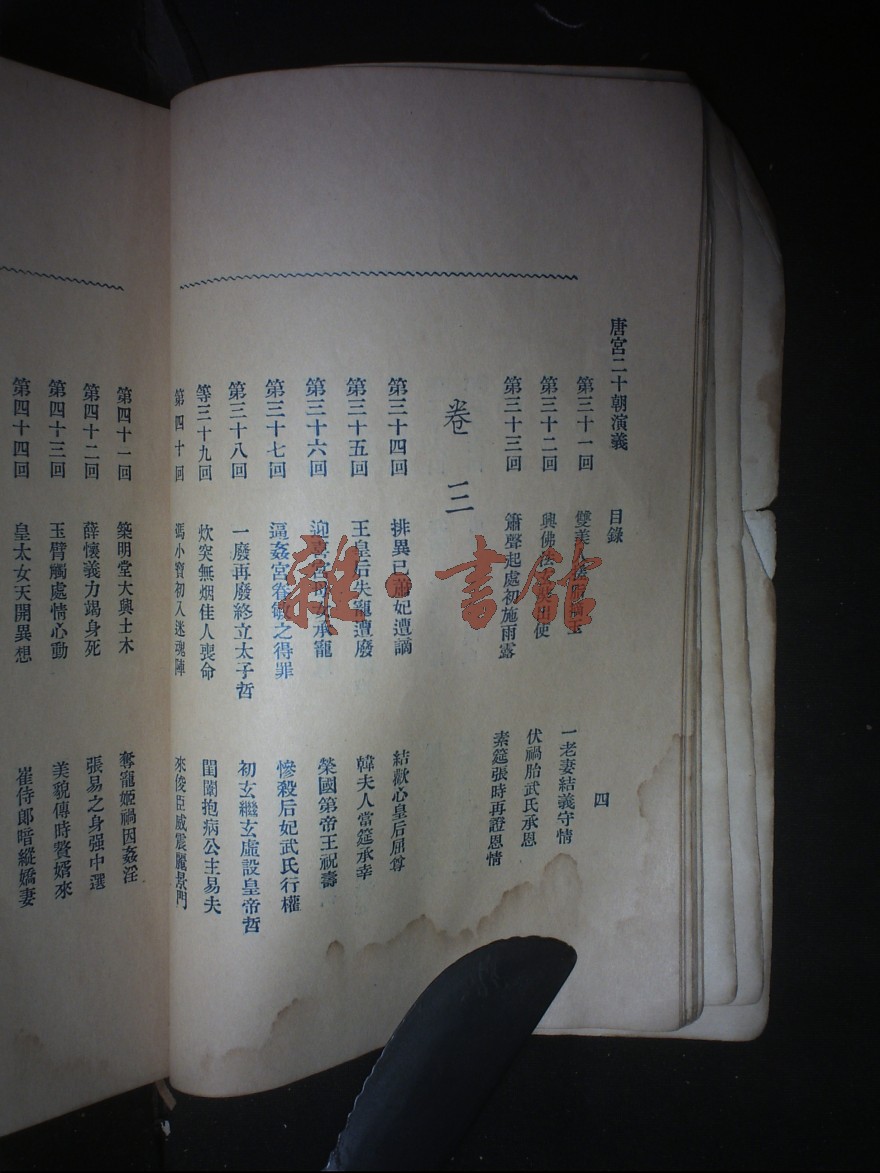 唐宮二十朝演義 目錄 四
第三十一回 雙美人玉 一老妻結義守情
第三十二回 興佛法使 伏禍胎武氏承恩
第三十三回 簫聲起處初施雨露 素筵張時再證恩情
卷三
第三十四回 排異己蕭妃遭謫 結歡心皇后屈尊
第三十五回 王皇后失寵遭廢 韓夫人當筵承幸
第三十六回 迎承寵 榮國第帝王祝壽
第三十七回 逼姦宮眷敏之得罪 慘殺后妃武氏行權
第三十八回 一廢再廢終立太子哲 初玄繼玄虛設皇帝哲
等三十九回 炊突無烟佳人喪命 閨闈抱病公主易夫
第四十回 馮小寶初入迷魂陣 來俊臣威震麗景門
第四十一回 築明堂大興土木 奪寵姬禍因姦淫
第四十二回 薛懷義力竭身死 張易之身强中選
第四十三回 玉臂觸處情心動 美貌傳時贅婿來
第四十四回 皇太女天開異想 崔侍郎暗縱嬌妻
雜·書館